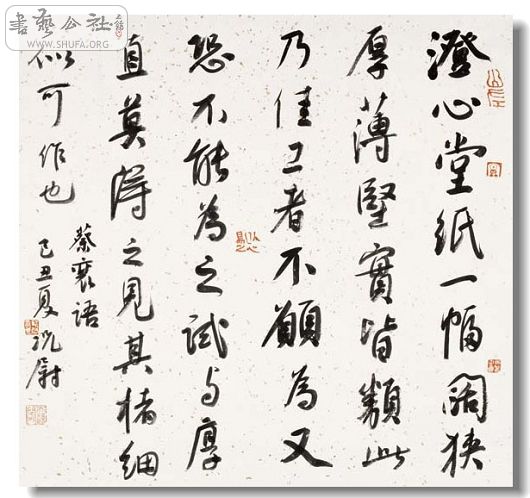 澄心堂紙一幅闊狹
厚薄堅實皆類此
乃佳工者不願為又
恐不能為之試与厚
直莫得之見其楮細
似可作也
蔡襄語
己丑夏况尉
書藝公社
www.SHUFA.ORG